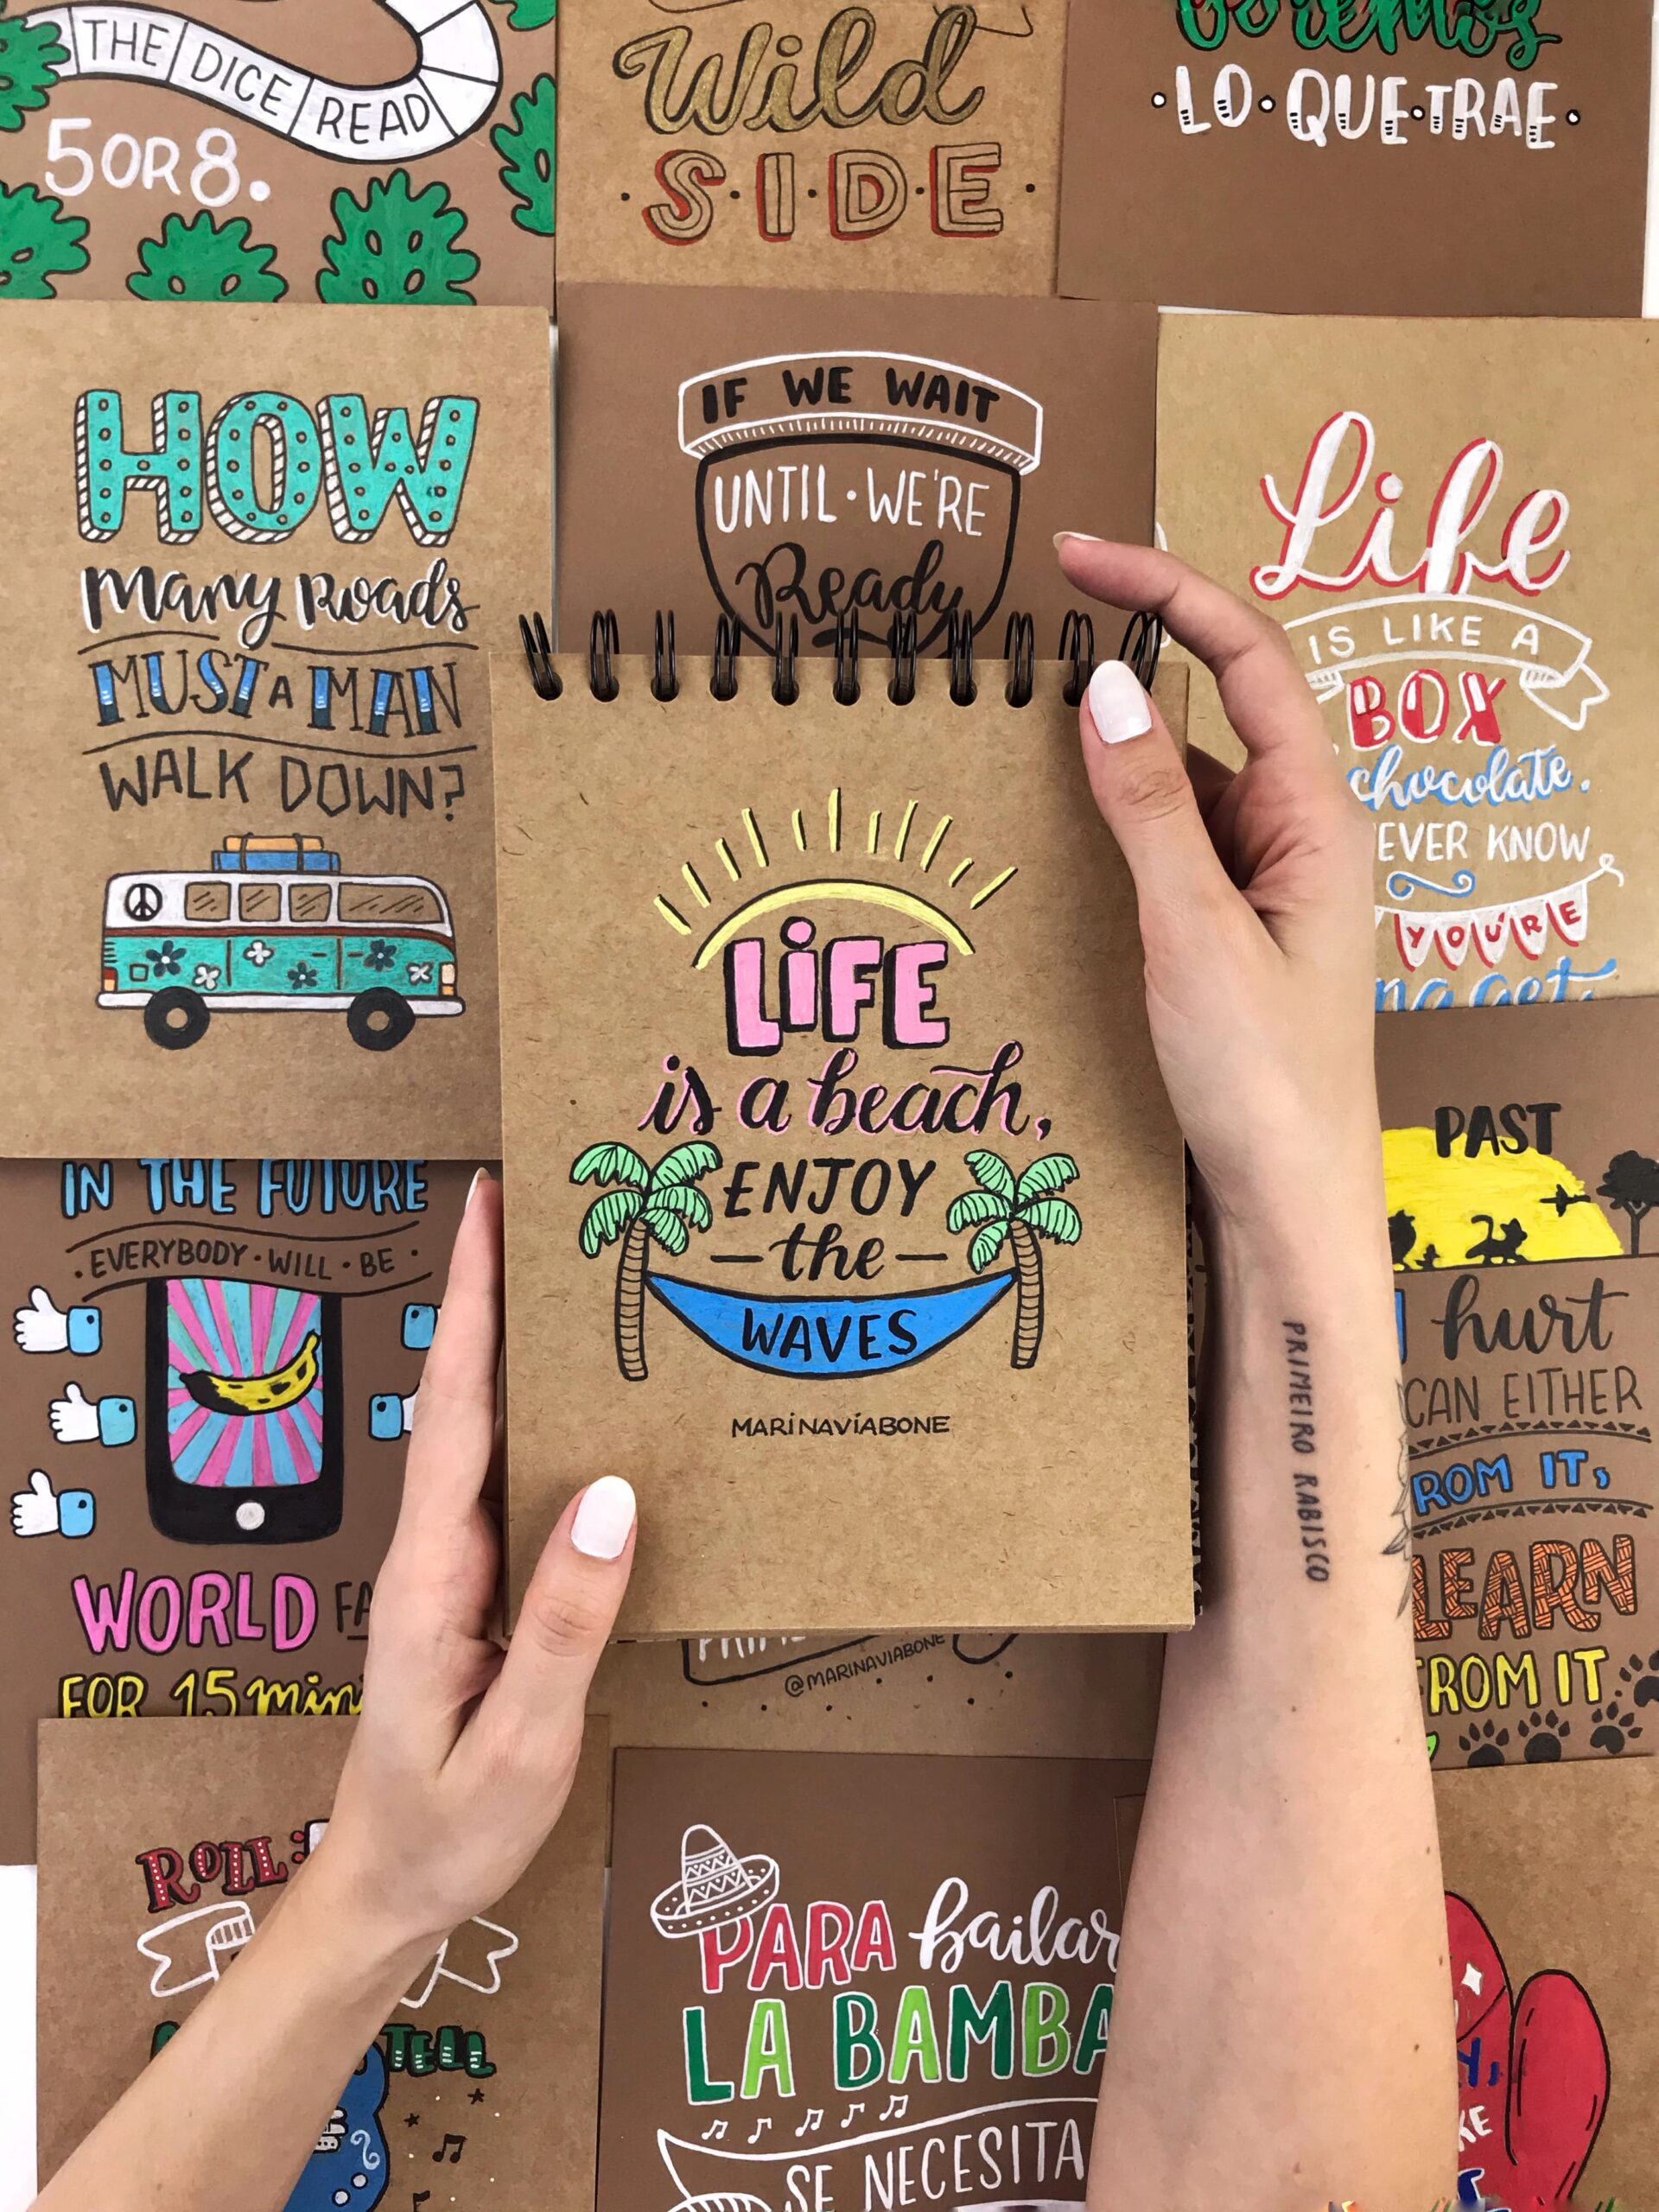 THE DICE READ
5 OR 8.
Wild
·S·I·D·E·
Veremos
·LO·QUE·TRAE·
HOW
Many Roads
MUST A MAN
WALK DOWN?
IF WE WAIT
UNTIL·WE'RE
Ready
Life
IS LIKE A
BOX
chocolate.
EVER KNOW
YOU'RE
get.
LiFE
is a beach,
ENJOY
—the—
WAVES
MARiNAViABONE
IN THE FUTURE
·EVERYBODY·WILL·BE·
WORLD FA
FOR 15 min
PAST
hurt
CAN EITHER
ROM IT,
LEARN
FROM IT
PRIMEIRO RABISCO
@MARINAVIABONE
ROLL
TELL
PARA bailar
LA BAMBA
SE NECESITA